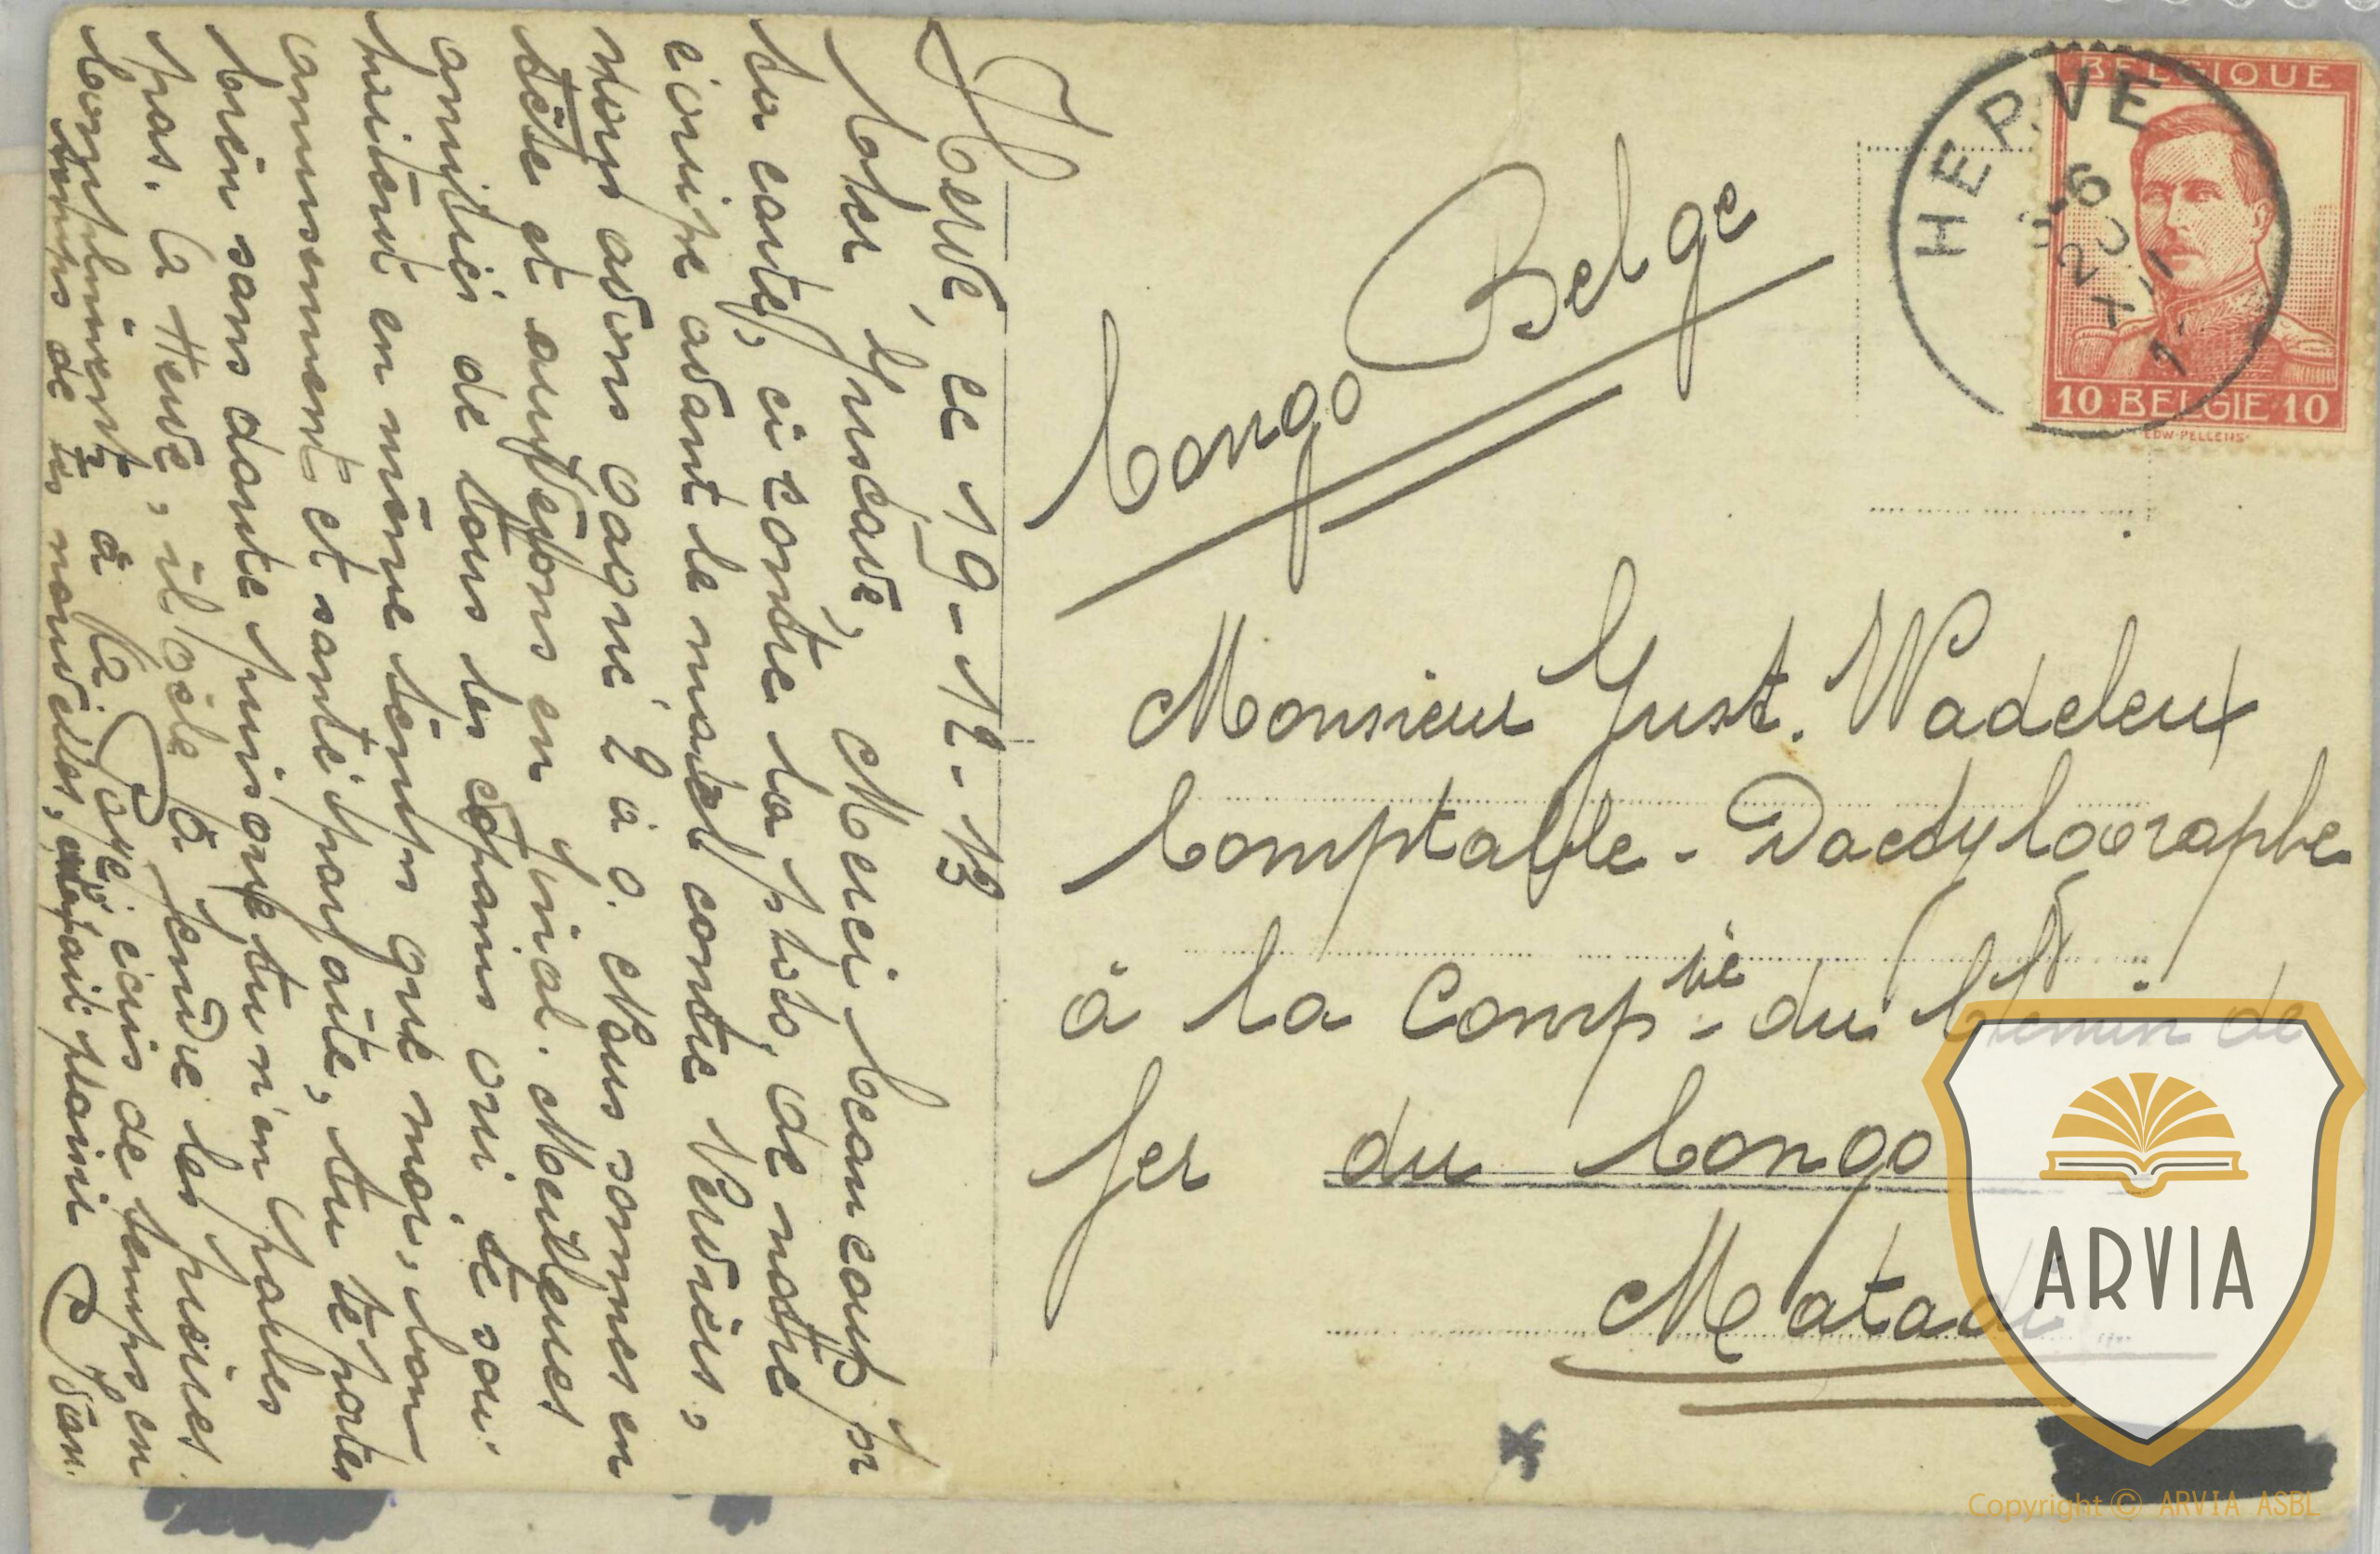 Hervé, ce 19-12-13
Cher Gustave, Merci beaucoup pr
ta carte, ci contre la photo, de notre
équipe avant le match contre Verviers,
nous avons gagné 2 à 0. Nous sommes en
tête et arriverons en final. Meilleures
amitiés de tous les copains qui te sou-
haitent en même temps que moi, bon
amusement et santé parfaite, tu te portes
bien sans doute puisque tu n'en parles
pas. A Herve, il gèle à fendre les pierres.
Compliments à ta écris de temps en
temps de tes nouvelles, ça fait plaisir
BELGIQUE
10 BELGIE 10
EDW. PELLENS
HERVE
6
20
XII
Congo Belge
Monsieur Gust. Wadeleux
Comptable - Dactylographe
à la Compnie du Chemin de
fer du Congo
Matadi
x
ARVIA
Copyright © ARVIA ASBL